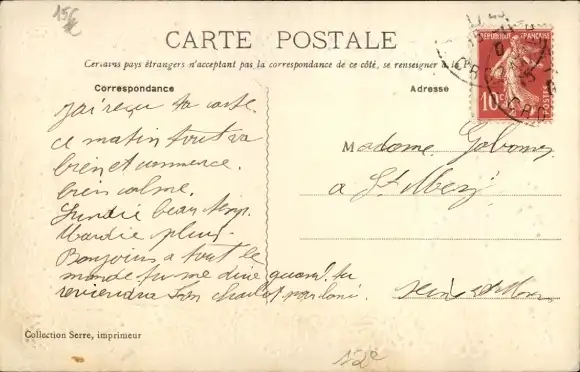 15c
CARTE POSTALE
Certains pays étrangers n'acceptent pas la correspondance de ce côté, se renseigner à la P
Correspondance
Adresse
RÉPUBLIQUE FRANÇAISE
10c
POSTES
j'ai reçu ta carte
ce matin tout va
bien et commence
bien calme.
Lundie beau temp
Mardie pluis
Bonjours a tout le
monde tu me dire quand tu
reviendra ton
Madame
a St
Collection Serre, imprimeur